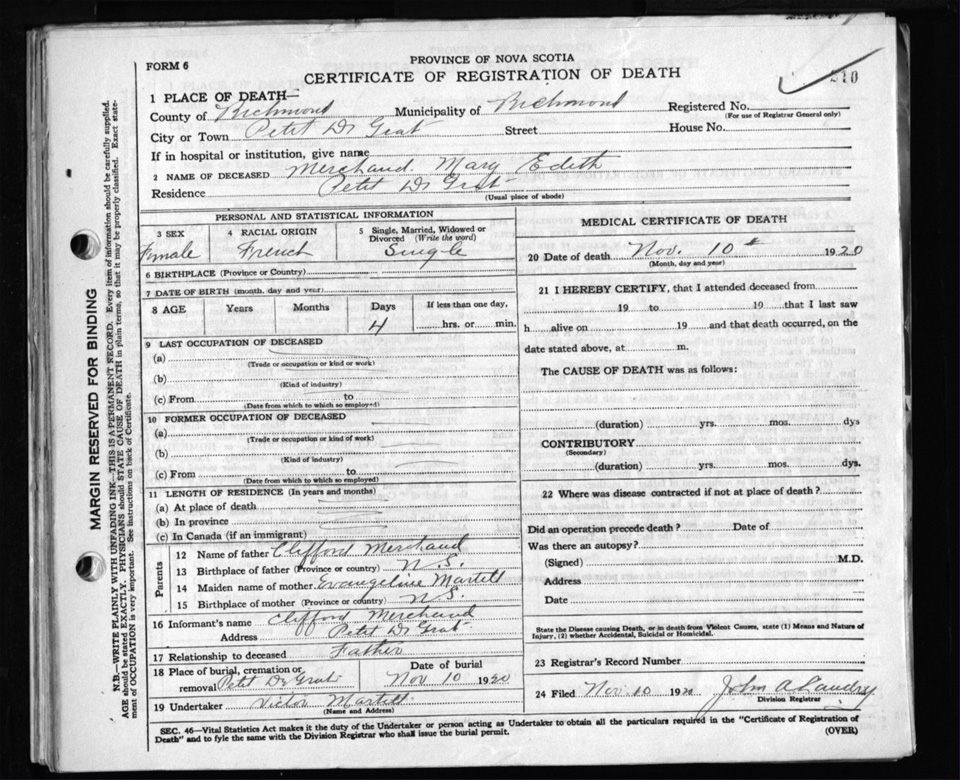 PROVINCE OF NOVA SCOTIA
FORM 6
CERTIFICATE OF REGISTRATION OF DEATH
210
1 PLACE OF DEATH—
County of Richmond Municipality of Richmond Registered No.
(For use of Registrar General only)
City or Town Petit De Grat Street House No.
If in hospital or institution, give name
2 NAME OF DECEASED Merchand. Mary Edith
Residence Petit De Grat
(Usual place of abode)
PERSONAL AND STATISTICAL INFORMATION
3 SEX 4 RACIAL ORIGIN 5 Single, Married, Widowed or Divorced (Write the word)
Female French Single
6 BIRTHPLACE (Province or Country)
7 DATE OF BIRTH (month, day and year)
8 AGE Years Months Days If less than one day,
4 hrs. or min.
9 LAST OCCUPATION OF DECEASED
(a)
(Trade or occupation or kind or work)
(b)
(Kind of industry)
(c) From to
(Date from which to which so employed)
10 FORMER OCCUPATION OF DECEASED
(a)
(Trade or occupation or kind of work)
(b)
(Kind of industry)
(c) From to
(Date from which to which so employed)
11 LENGTH OF RESIDENCE (In years and months)
(a) At place of death
(b) In province
(c) In Canada (if an immigrant)
Parents
12 Name of father Clifford Merchand
13 Birthplace of father (Province or country) N.S.
14 Maiden name of mother Evangeline Martell
15 Birthplace of mother (Province or country) N.S.
16 Informant's name Clifford Merchand
Address Petit De Grat
17 Relationship to deceased Father
18 Place of burial, cremation or removal Petit De Grat Date of burial Nov 10 1920
19 Undertaker Victor Martell
(Name and Address)
MEDICAL CERTIFICATE OF DEATH
20 Date of death Nov. 10th 1920
(Month, day and year)
21 I HEREBY CERTIFY, that I attended deceased from
19 to 19 that I last saw
h alive on 19 and that death occurred, on the
date stated above, at m.
The CAUSE OF DEATH was as follows:
(duration) yrs. mos. dys
CONTRIBUTORY
(Secondary)
(duration) yrs. mos. dys.
22 Where was disease contracted if not at place of death?
Did an operation precede death? Date of
Was there an autopsy?
(Signed) M.D.
Address
Date
State the Disease causing Death, or in death from Violent Causes, state (1) Means and Nature of
Injury, (2) whether Accidental, Suicidal or Homicidal.
23 Registrar's Record Number
24 Filed Nov. 10 1920 John A Landry
Division Registrar
SEC. 46—Vital Statistics Act makes it the duty of the Undertaker or person acting as Undertaker to obtain all the particulars required in the "Certificate of Registration of
Death" and to fyle the same with the Division Registrar who shall issue the burial permit. (OVER)
MARGIN RESERVED FOR BINDING
N.B.—WRITE PLAINLY WITH UNFADING INK—THIS IS A PERMANENT RECORD. Every item of information should be carefully supplied.
AGE should be stated EXACTLY. PHYSICIANS should STATE CAUSE OF DEATH in plain terms, so that it may be properly classified. Exact statement
of OCCUPATION is very important. See instructions on back of Certificate.